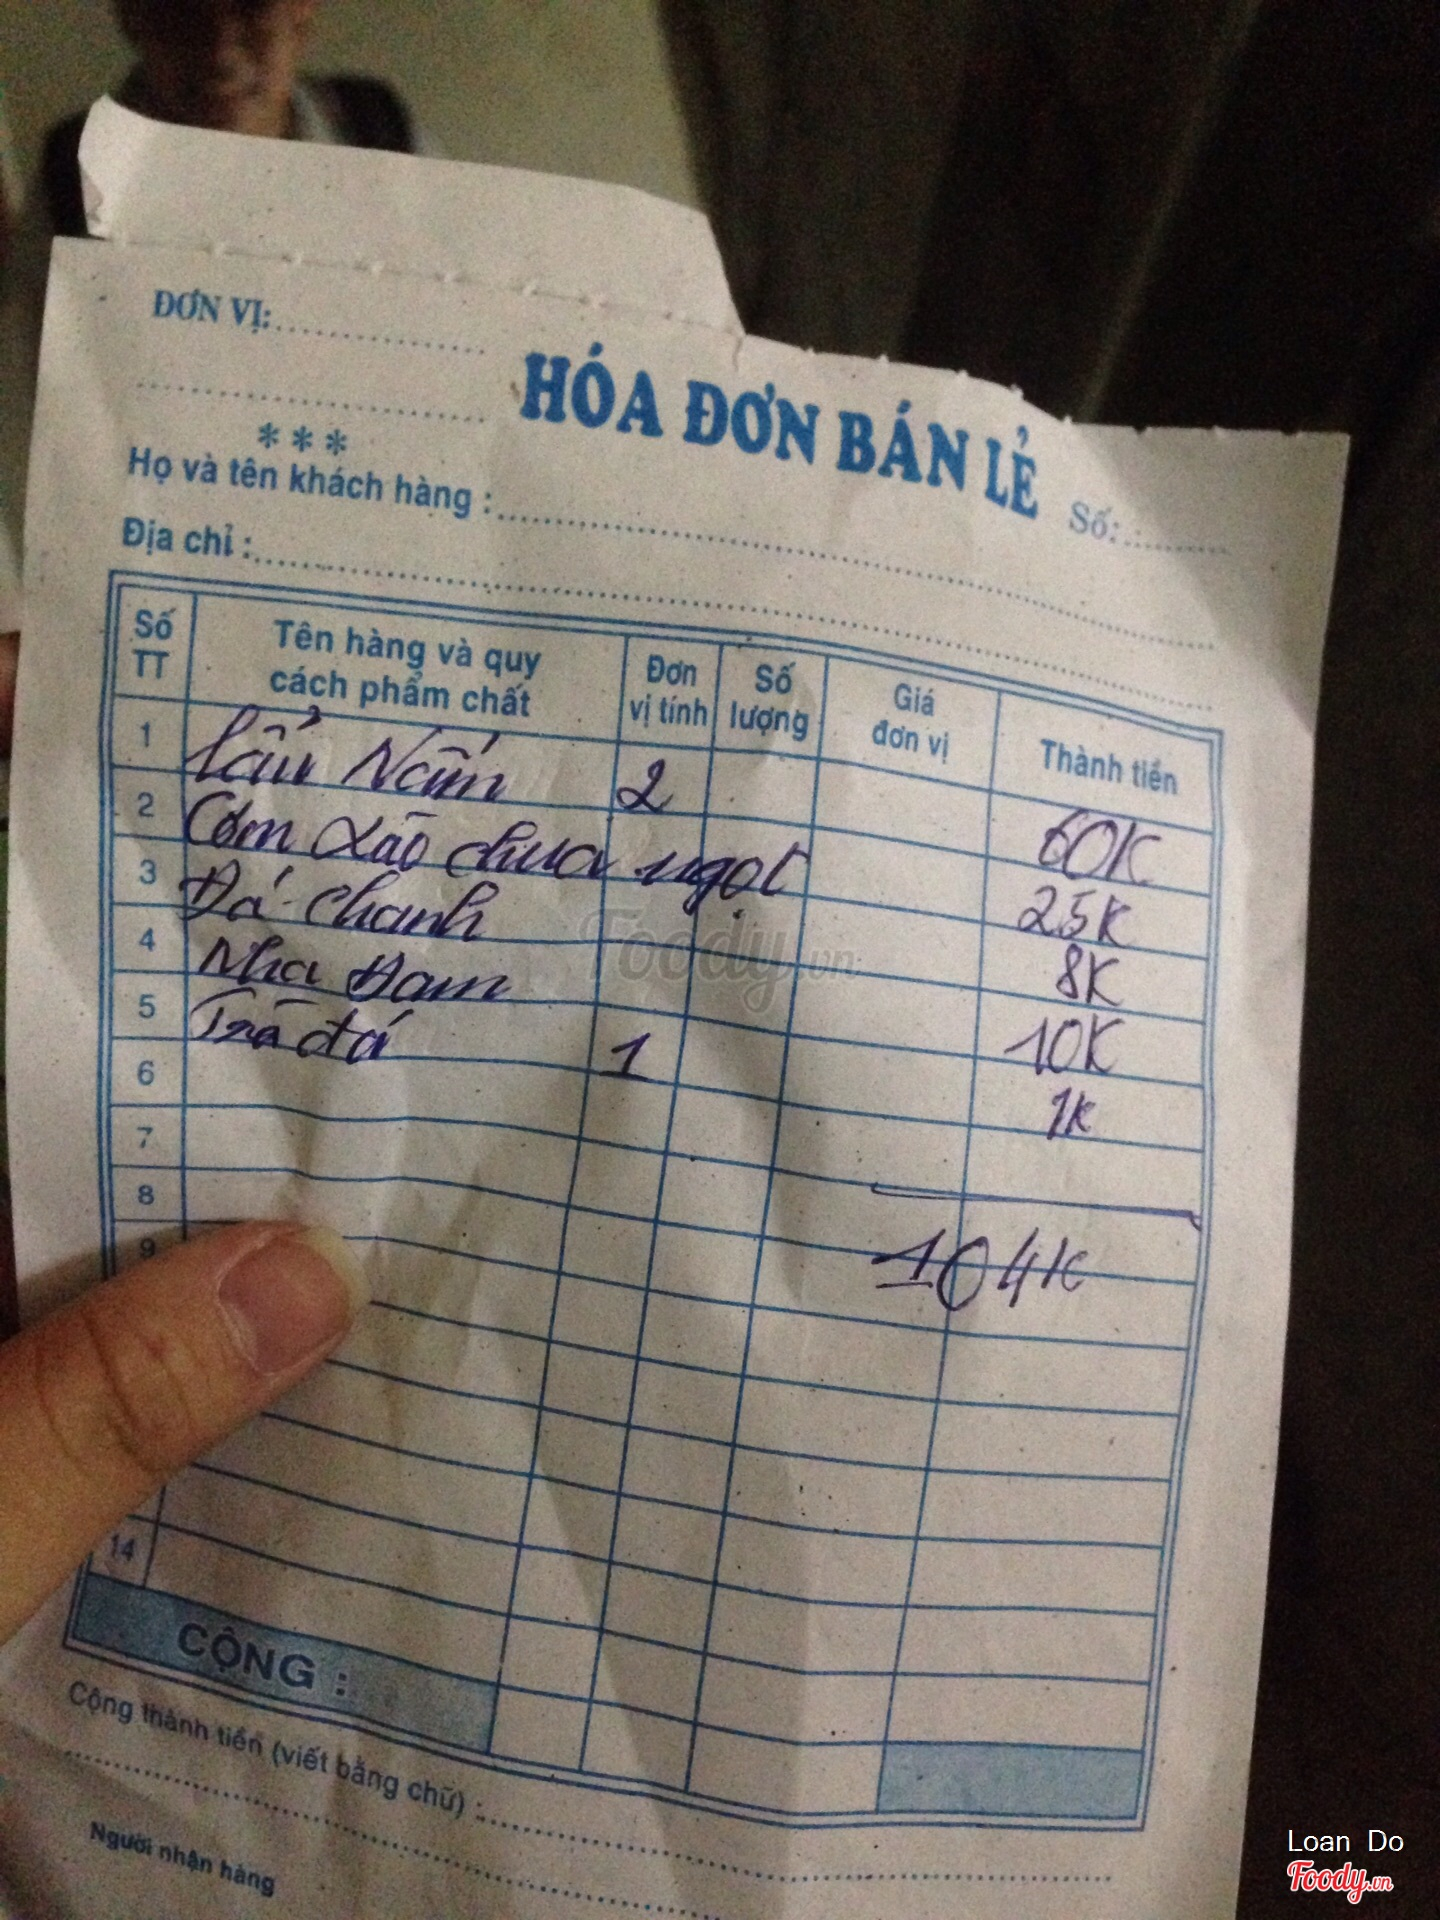 ĐƠN VỊ:
HÓA ĐƠN BÁN LẺ
***
Số:
Họ và tên khách hàng :
Địa chỉ :
Số TT Tên hàng và quy cách phẩm chất Đơn vị tính Số lượng Giá đơn vị Thành tiền
1 Lẩu Nấm 2 60K
2 Cơm xào chua ngọt 25K
3 Đá chanh 8K
4 Nha Đam 10K
5 Trà đá 1 1K
6
7
8 104K
9
14
CỘNG :
Cộng thành tiền (viết bằng chữ) :
Người nhận hàng
Foody.vn
Loan Do
Foody.vn